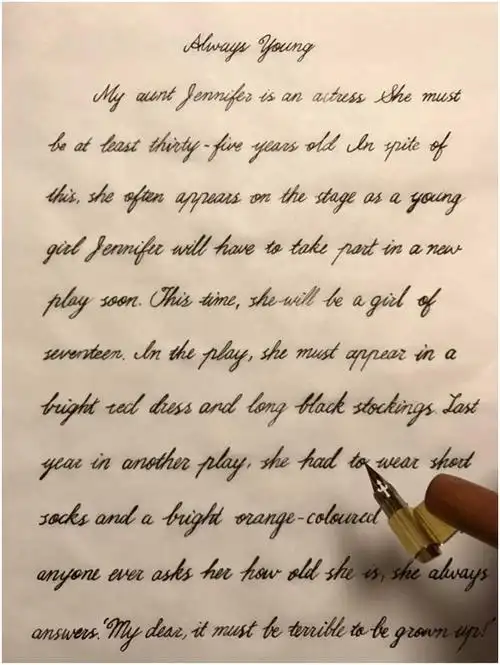 Always Young
My aunt Jennifer is an actress She must
be at least thirty-five years old In spite of
this, she often appears on the stage as a young
girl Jennifer will have to take part in a new
play soon. This time, she will be a girl of
seventeen. In the play, she must appear in a
bright red dress and long black stockings. Last
year in another play, she had to wear short
socks and a bright orange-coloured
anyone ever asks her how old she is, she always
answers.'My dear, it must be terrible to be grown up!'